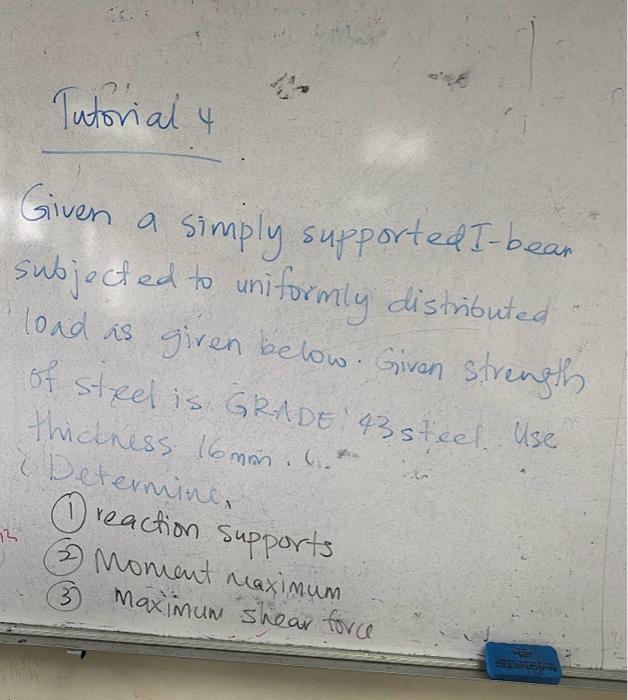 Tutorial 4
Given a simply supported I-beam
subjected to uniformly distributed
load as given below. Given strength
of steel is GRADE 43 steel. Use
thickness 16mm.
Determine,
① reaction supports
② Moment maximum
③ maximum shear force
MAGNETIC